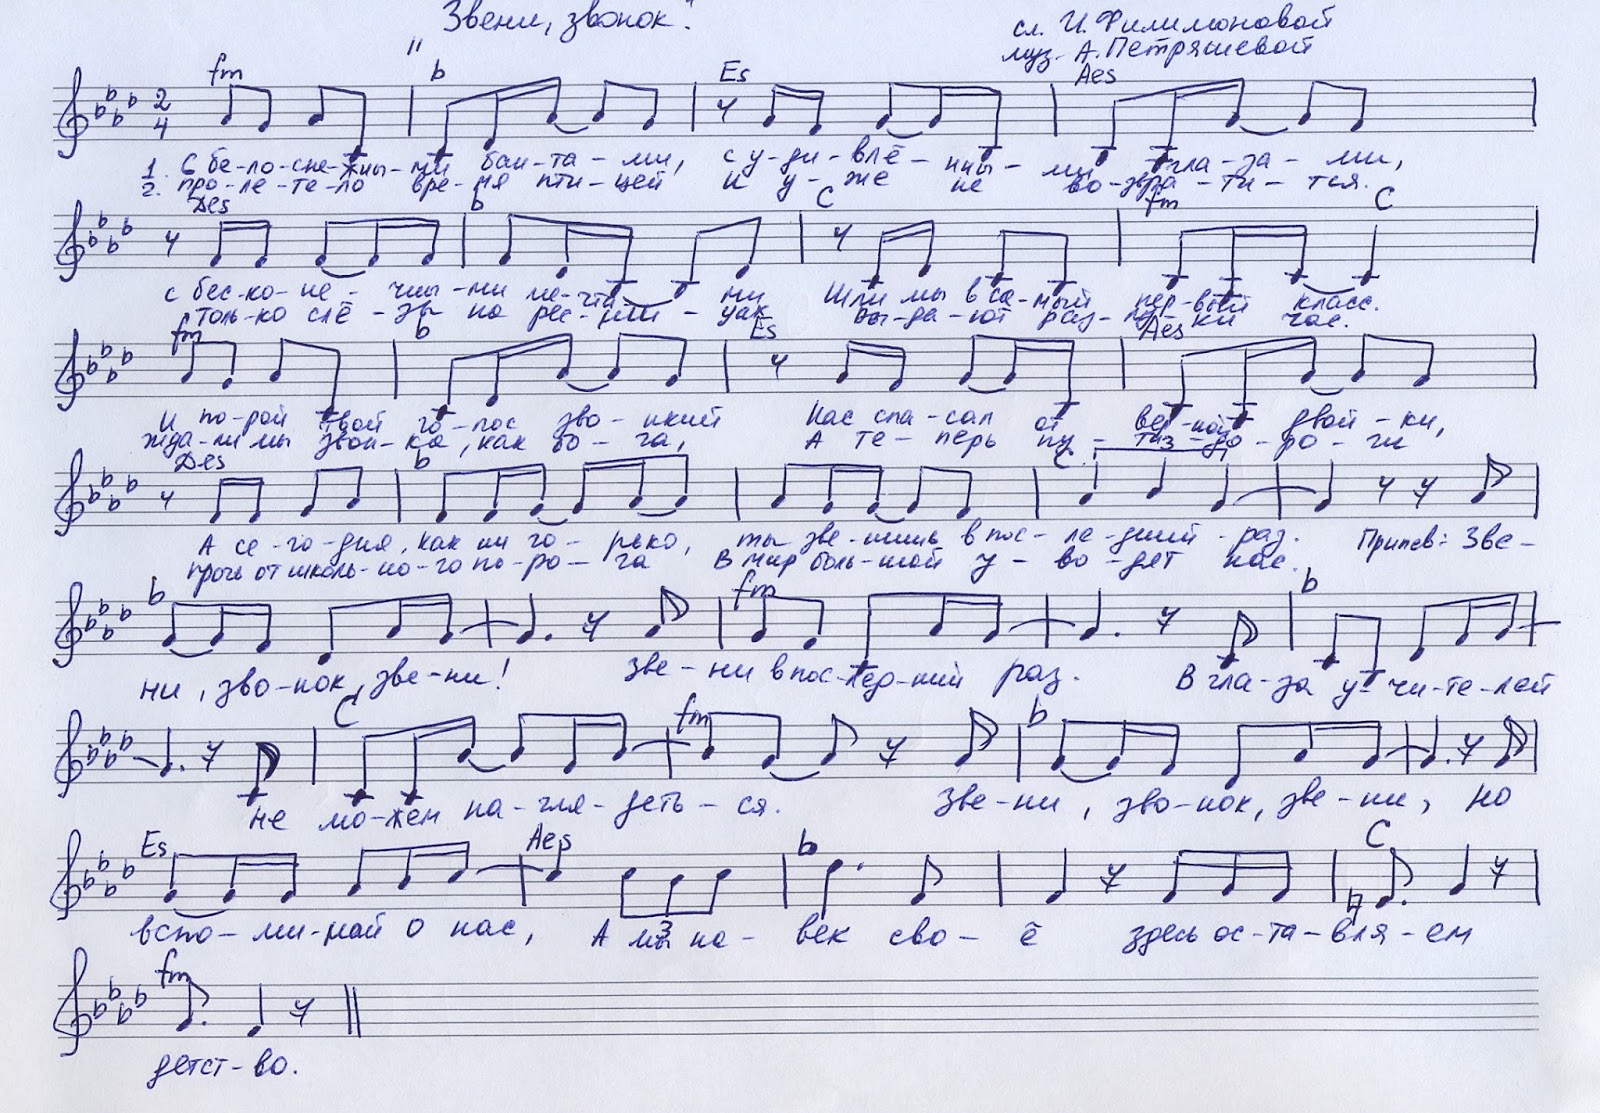 "Звени, звонок".
сл. И. Филимоновой
муз. А. Петряшевой
fm b Es Aes
2 4
1. С бе-ло-сне-жны-ми бан-та-ми, с у-ди-влё-нны-ми гла-за-ми,
2. про-ле-те-ло вре-мя пти-цей и у-же не во-звра-ти-тся.
Des b C fm C
с бес-ко-не-чны-ми ме-чта-ми Шли мы в са-мый пер-вый класс.
толь-ко слё-зы на рес-ни-цах вы-да-ют раз-лу-ки час.
fm b Es Aes
И по-рой твой го-лос зво-нкий нас спа-сал от вер-ной двой-ки,
жда-ли мы звон-ка, как бо-га, А те-перь пу-ти-до-ро-ги
Des b C
А се-го-дня, как ни го-рько, ты зве-нишь в пос-ле-дний раз. Припев: Зве-
прочь от школь-но-го по-ро-га В мир боль-шой у-во-дят нас.
b fm b
ни, зво-нок, зве-ни! Зве-ни в пос-лед-ний раз. В гла-за у-чи-те-лей
C fm b
не мо-жем на-гля-деть-ся. Зве-ни, зво-нок, зве-ни, но
Es Aes b C
вспо-ми-най о нас, А мы на-век сво-ё здесь ос-та-вля-ем
3
fm
детст-во.